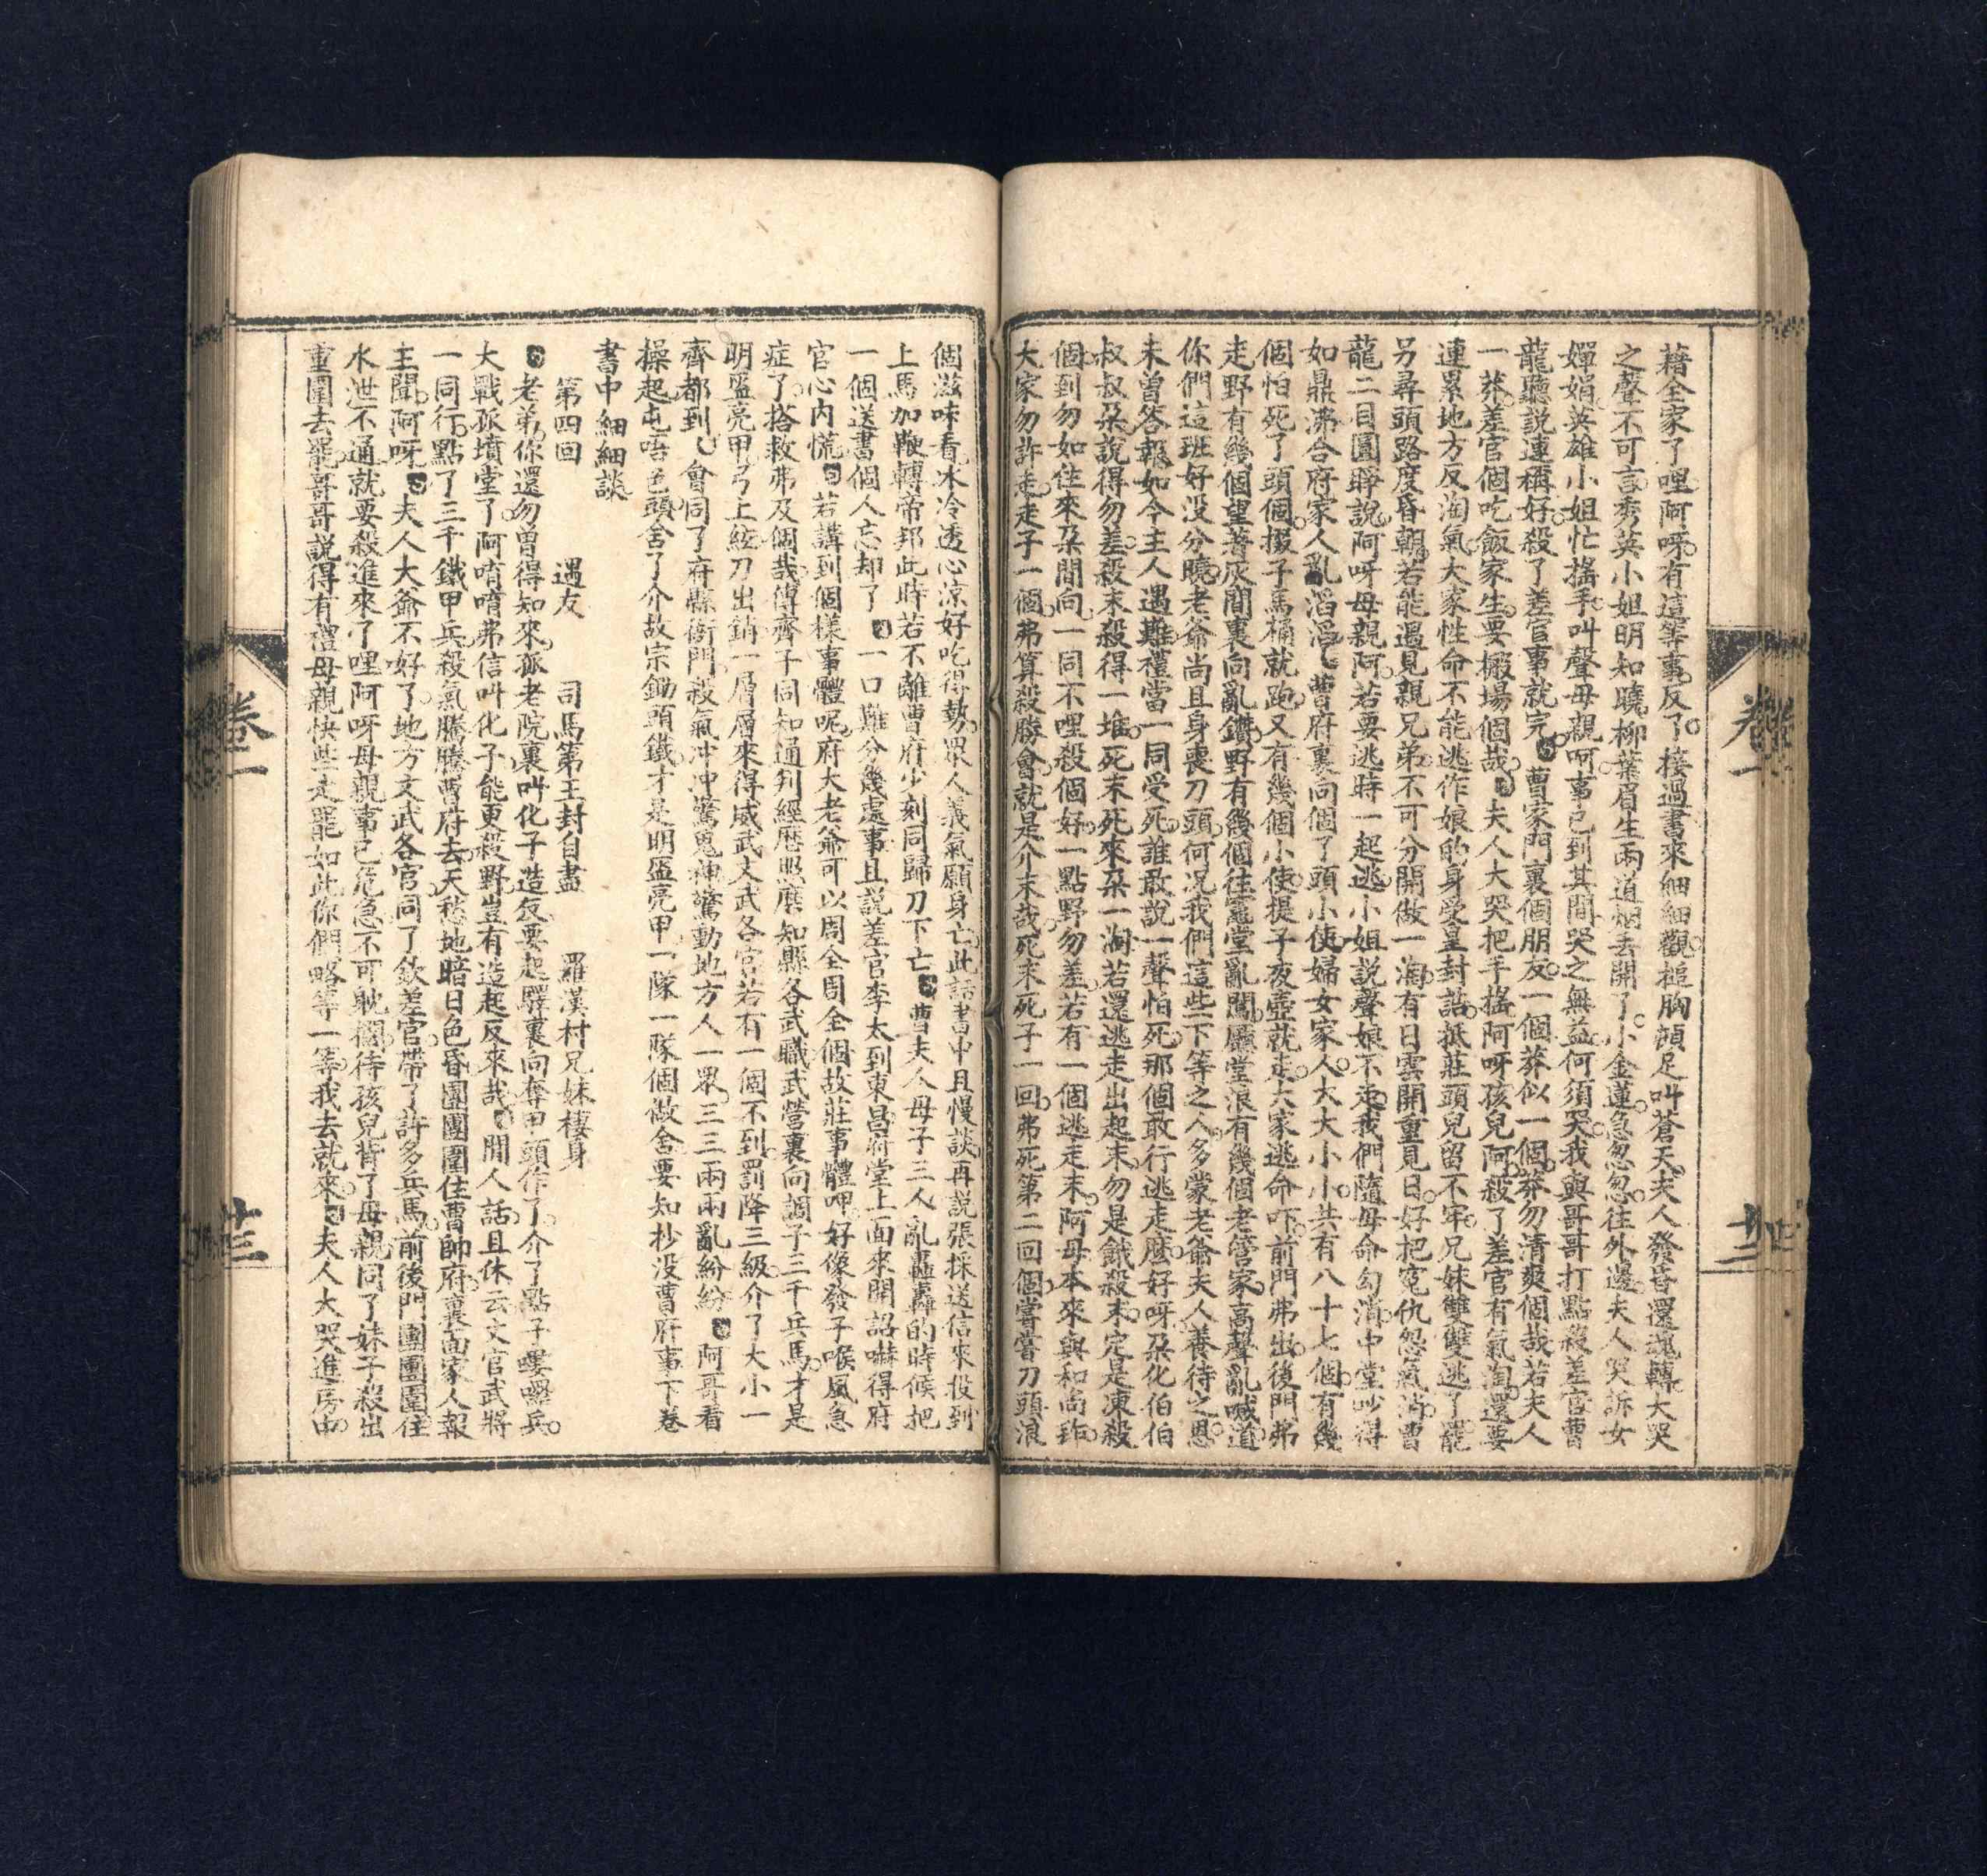 藉全家了哩阿呀有這等事反了接過書來細細觀槌胸頓足叫蒼天夫人發昏還魂轉大哭
之聲不可言秀英小姐明知曉柳葉眉生兩道烟去開了小金蓮急忽忽往外邊夫人哭訴女
嬋娟英雄小姐忙搖手叫聲母親呵事已到其間哭之無益何須哭我與哥哥打點殺差官曹
龍聽説連稱好殺了差官事就完曹家門裏個朋友一個莽似一個莽勿清爽個哉若夫人
一莽差官個吃飯家生要搬場個哉夫人大哭把手搖阿呀孩兒阿殺了差官有氣淘還要
連累地方反淘氣大家性命不能逃作娘的身受皇封誥抵莊頭兒留不牢兄妹雙雙逃了罷
另尋頭路度昏朝若能遇見親兄弟不可分開做一淘有日雲開重見日好把寃仇怨氣消曹
龍二目圓睜説阿呀母親阿若要逃時一起逃小姐説聲娘不走我們隨母命勾消中堂吵得
如鼎沸合府家人亂滔滔曹府裏向個了頭小使婦女家人大大小小共有八十七個有幾
個怕死了頭個掇子馬桶就跑又有幾個小使提子夜壺就走大家逃命吓前門弗出後門弗
走野有幾個望著灰間裏向亂鑽野有幾個往竈堂亂闖廳堂浪有幾個老管家高聲亂喊道
你們這班好没分曉老爺尚且身喪刀頭何况我們這些下等之人多蒙老爺夫人養待之恩
未曾答報如今主人遇難禮當一同受死誰敢說一聲怕死那個敢行逃走麽好呀朶化伯伯
叔叔朶説得勿差殺末殺得一堆死末死來朶一淘若還逃走出起末勿是餓殺末定是凍殺
個到勿如住來朶間向一同不哩殺個好一點野勿差若有一個逃走末阿母本來與和尚
大家勿許走走子一個弗算殺勝會就是介末哉死末死子一回弗死第二回個嘗嘗刀頭浪
卷一
個滋味看冰冷透心涼好吃得勢眾人義氣願身亡此話書中且慢談再説張採送信來投到
上馬加鞭轉帝邦此時若不離曹府少刻同歸刀下亡曹夫人母子三人亂轟轟的時候把
一個送書個人忘却了一口難分幾處事且説差官李太到東昌府堂上面來開詔嚇得府
官心内慌若講到個樣事體呢府大老爺可以周全周全個故莊事體呷好像發子喉風急
症了搭救弗及個哉傅齊子同知通判經歷照磨知縣各武職武營裏向調子三千兵馬才是
明盔亮甲弓上絃刀出銷一層層來得威武文武各官若有一個不到罰降三級介了大小一
齊都到會同了府縣衙門殺氣冲冲驚鬼神驚動地方人一眾三三兩兩亂紛紛阿哥看
操起屯唔色頭舍了介故宗鋤頭鐵才是明盔亮甲一隊一隊個做舍要知抄没曹府事下卷
書中細細談
第四回 遇友 司馬第王封自盡 羅漢村兄妹棲身
老弟你還勿曾得知來孤老院裏叫化子造反要起驛裏向奪甲頭作了介了點子嘍囉兵
大戰孤墳堂了阿唷唷弗信叫化子能更殺野豈有造起反來哉閒人話且休云文官武將
一同行點了三千鐵甲兵殺氣騰騰曹府去天愁地暗日色昏團團圍住曹帥府裏面家人報
主聞阿呀夫人大爺不好了地方文武各官同了欽差官帶了許多兵馬前後門團團圍住
水泄不通就要殺進來了哩阿呀母親事已危急不可躭擱待孩兒背了母親同了妹子殺出
重圍去罷哥哥説得有禮母親快些走罷如此你們略等一等我去就來夫人大哭進房中
卷一